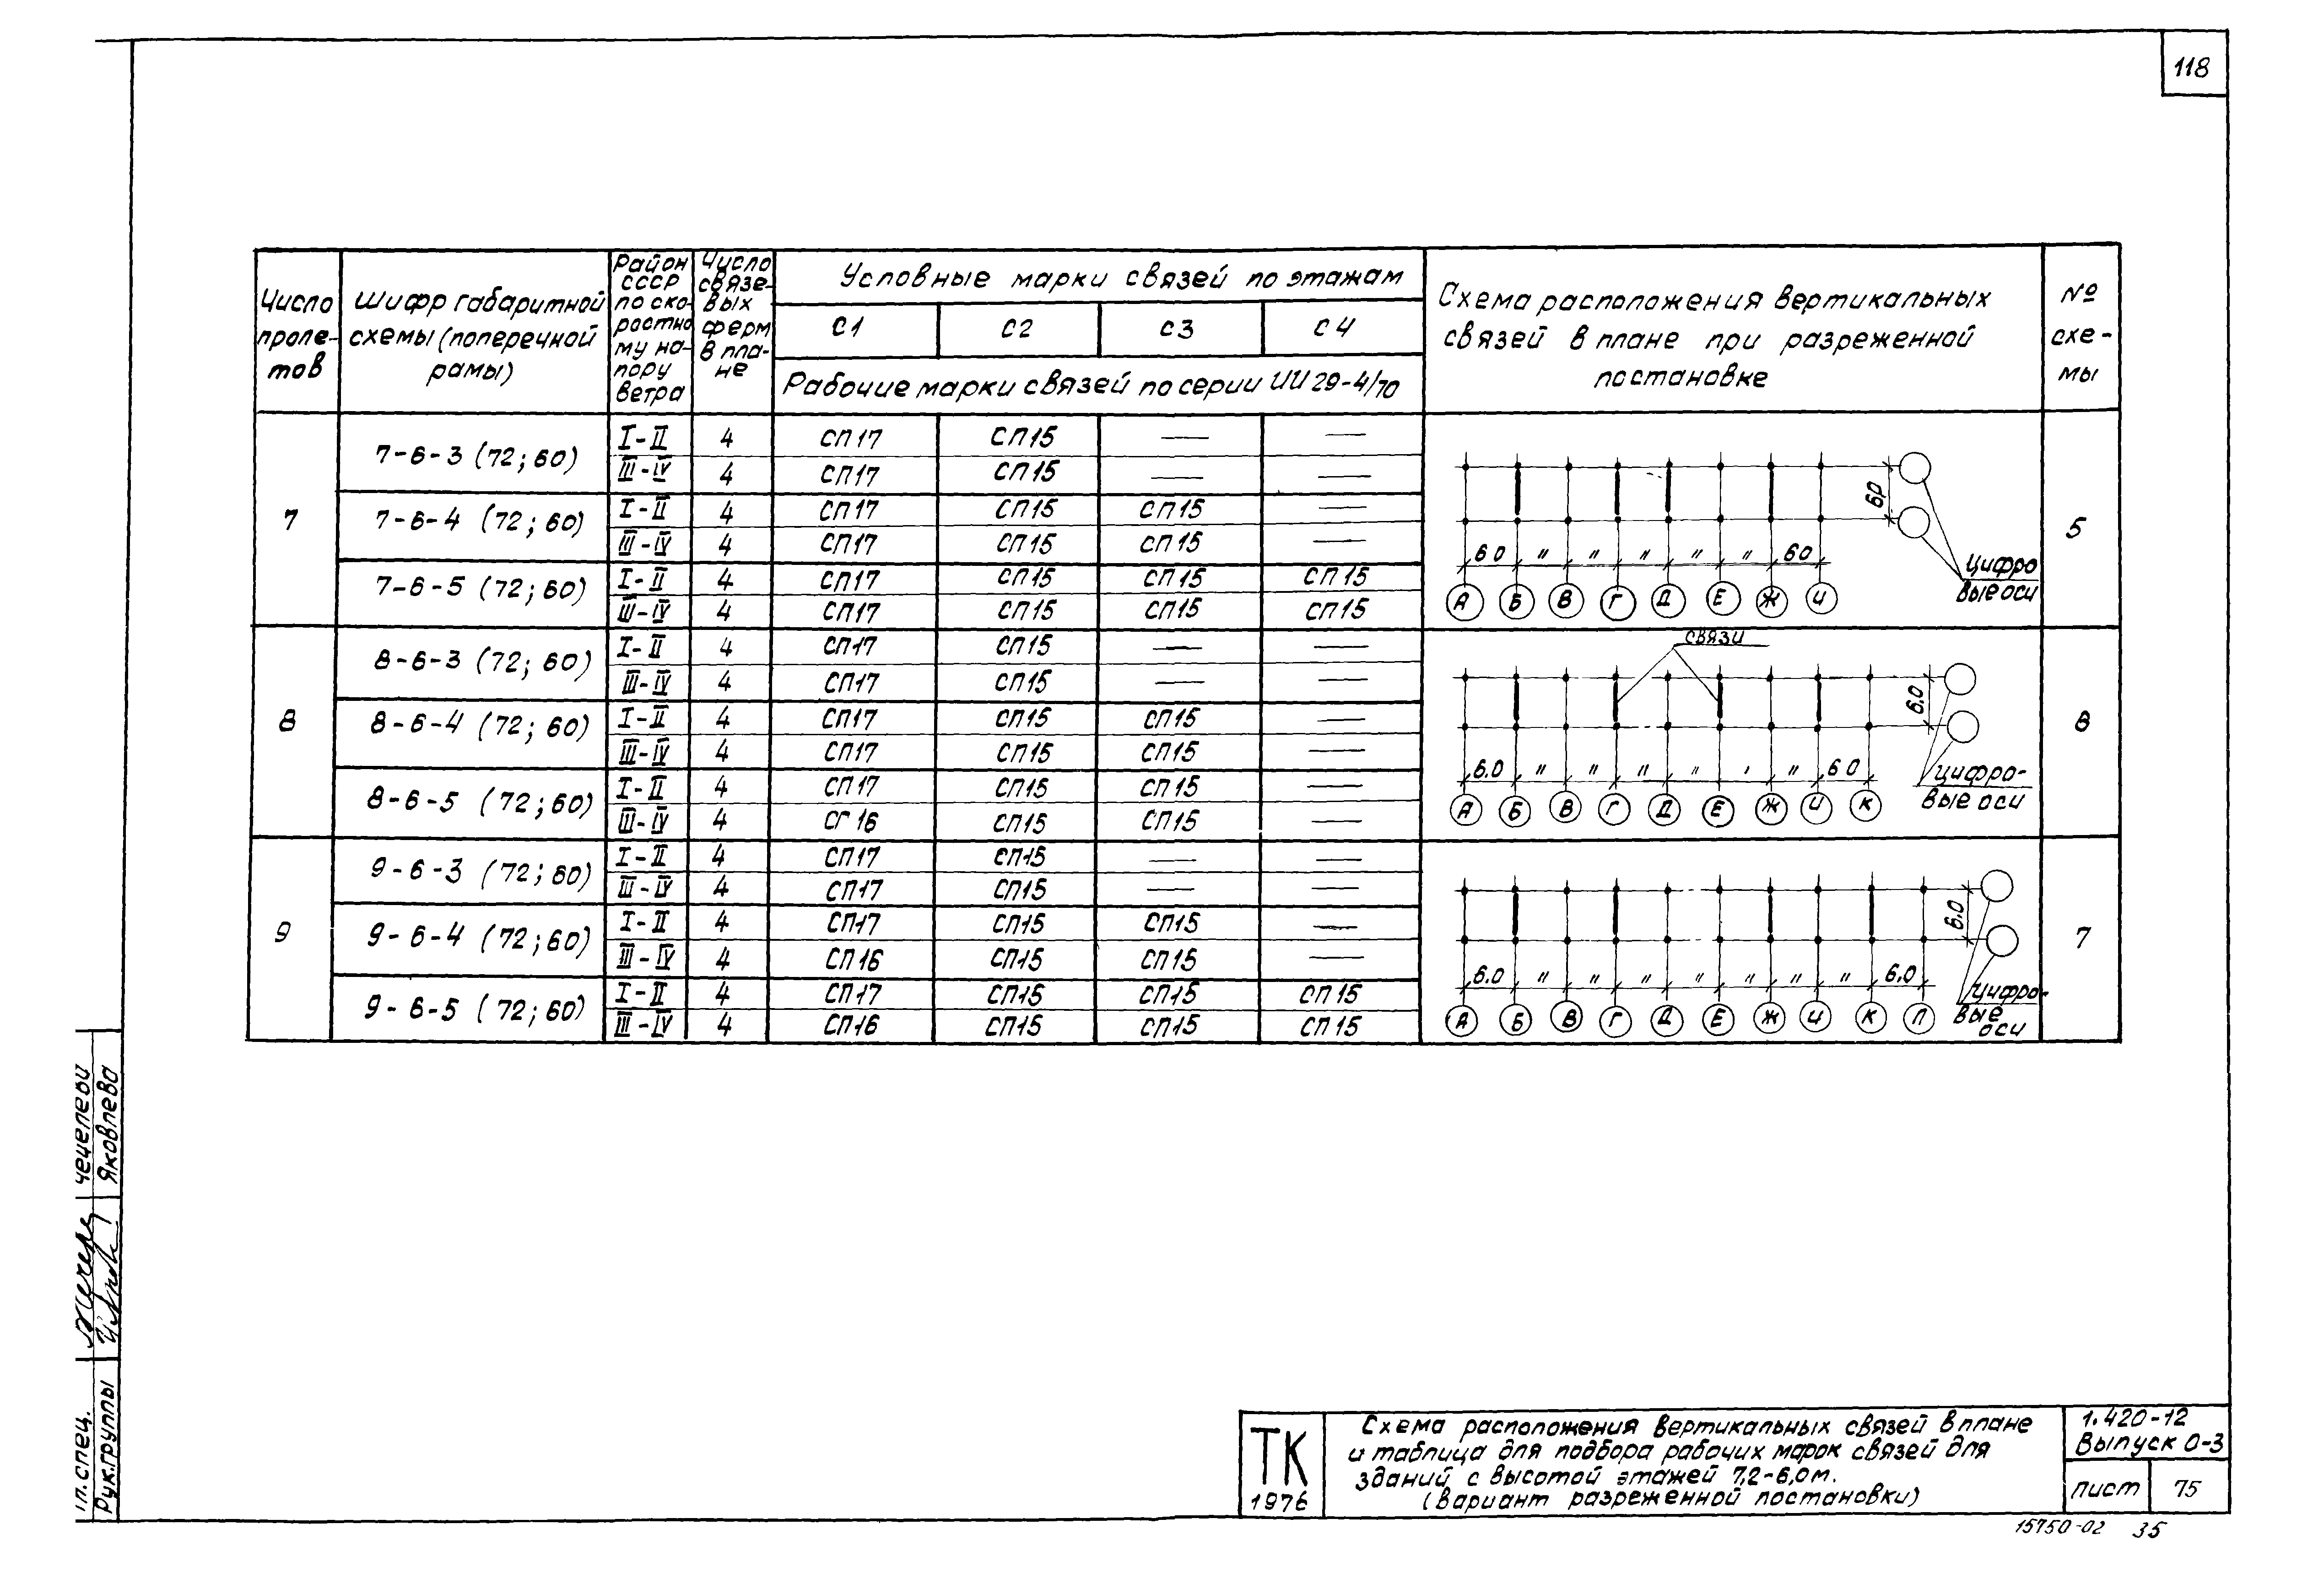 118
Число проле- тов
Шифр габаритной схемы (поперечной рамы)
Район СССР по ско- ростно му на- пору ветра
Число связе- вых ферм в пла- не
Условные марки связей по этажам
С1 С2 С3 С4
Рабочие марки связей по серии ИИ 29-4/70
Схема расположения вертикальных связей в плане при разреженной постановке
№ схе- мы
7
7-6-3 (72; 60) I-II 4 СП17 СП15 — —
III-IV 4 СП17 СП15 — —
7-6-4 (72; 60) I-II 4 СП17 СП15 СП15 —
III-IV 4 СП17 СП15 СП15 —
7-6-5 (72; 60) I-II 4 СП17 СП15 СП15 СП15
III-IV 4 СП17 СП15 СП15 СП15
60 " " " " " 60
60
А Б В Г Д Е Ж И
Цифро
вые оси
5
8
8-6-3 (72; 60) I-II 4 СП17 СП15 — —
III-IV 4 СП17 СП15 — —
8-6-4 (72; 60) I-II 4 СП17 СП15 СП15 —
III-IV 4 СП17 СП15 СП15 —
8-6-5 (72; 60) I-II 4 СП17 СП15 СП15 —
III-IV 4 СГ16 СП15 СП15 —
связи
6.0 " " " " ' " 6 0
6.0
А Б В Г Д Е Ж И К
цифро-
вые оси
8
9
9-6-3 (72; 60) I-II 4 СП17 СП15 — —
III-IV 4 СП17 СП15 — —
9-6-4 (72; 60) I-II 4 СП17 СП15 СП15 —
III-IV 4 СП16 СП15 СП15 —
9-6-5 (72; 60) I-II 4 СП17 СП15 СП15 СП15
III-IV 4 СП16 СП15 СП15 СП15
6.0 " " " " " " " 6.0
6.0
А Б В Г Д Е Ж И К Л
Цифро-
вые
оси
7
Гл. спец. Чечелева
Рук. группы Яковлева
ТК
1976
Схема расположения вертикальных связей в плане
и таблица для подбора рабочих марок связей для
зданий с высотой этажей 7,2-6,0м.
(вариант разреженной постановки)
1.420-12
Выпуск 0-3
лист 75
15750-02 35